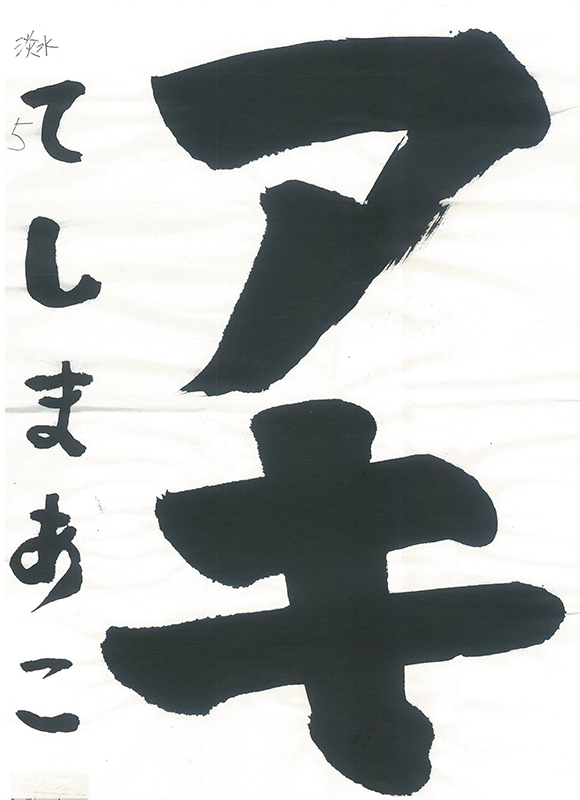 アキ
淡水
5
てしまあこ